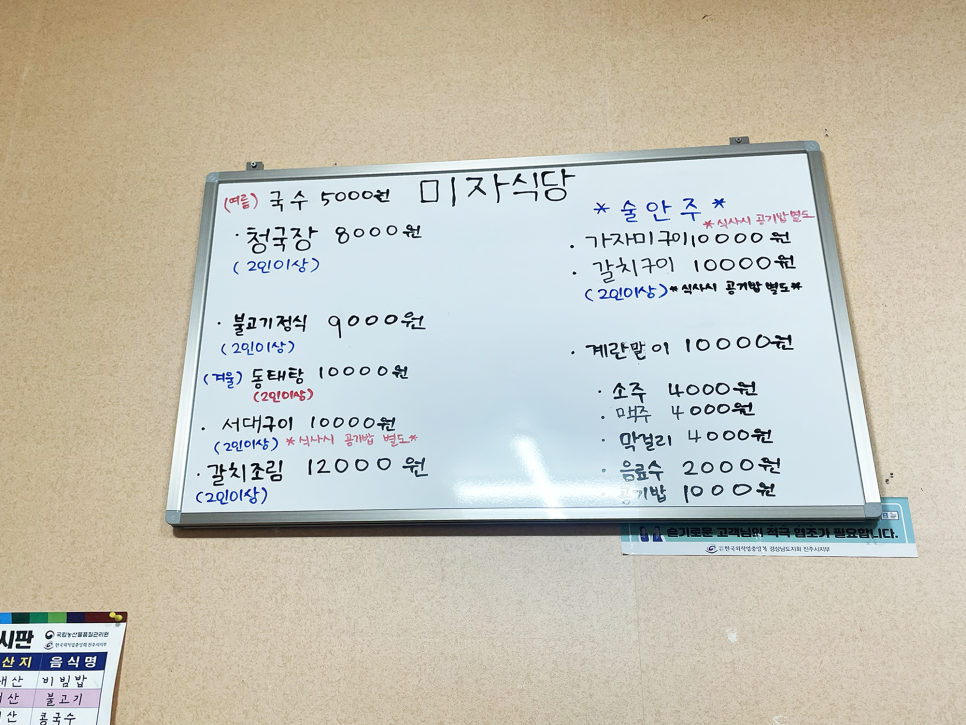 미자식당
(여름) 국수 5000원
· 청국장 8000원
(2인이상)
· 불고기정식 9000원
(2인이상)
(겨울) 동태탕 10000원
(2인이상)
· 서대구이 10000원
(2인이상) *식사시 공기밥 별도*
· 갈치조림 12000원
(2인이상)
* 술안주 *
*식사시 공기밥별도
· 가자미구이 10000원
· 갈치구이 10000원
(2인이상) *식사시 공기밥 별도*
· 계란말이 10000원
· 소주 4000원
· 맥주 4000원
· 막걸리 4000원
· 음료수 2000원
· 공기밥 1000원
슬기로운 고객님의 적극 협조가 필요합니다.
한국외식업중앙회 경상남도지회 진주시지부
시판
국립농산물품질관리원
한국외식업중앙회 진주시지부
산지 음식명
내산 비빔밥
산 불고기
산 콩국수